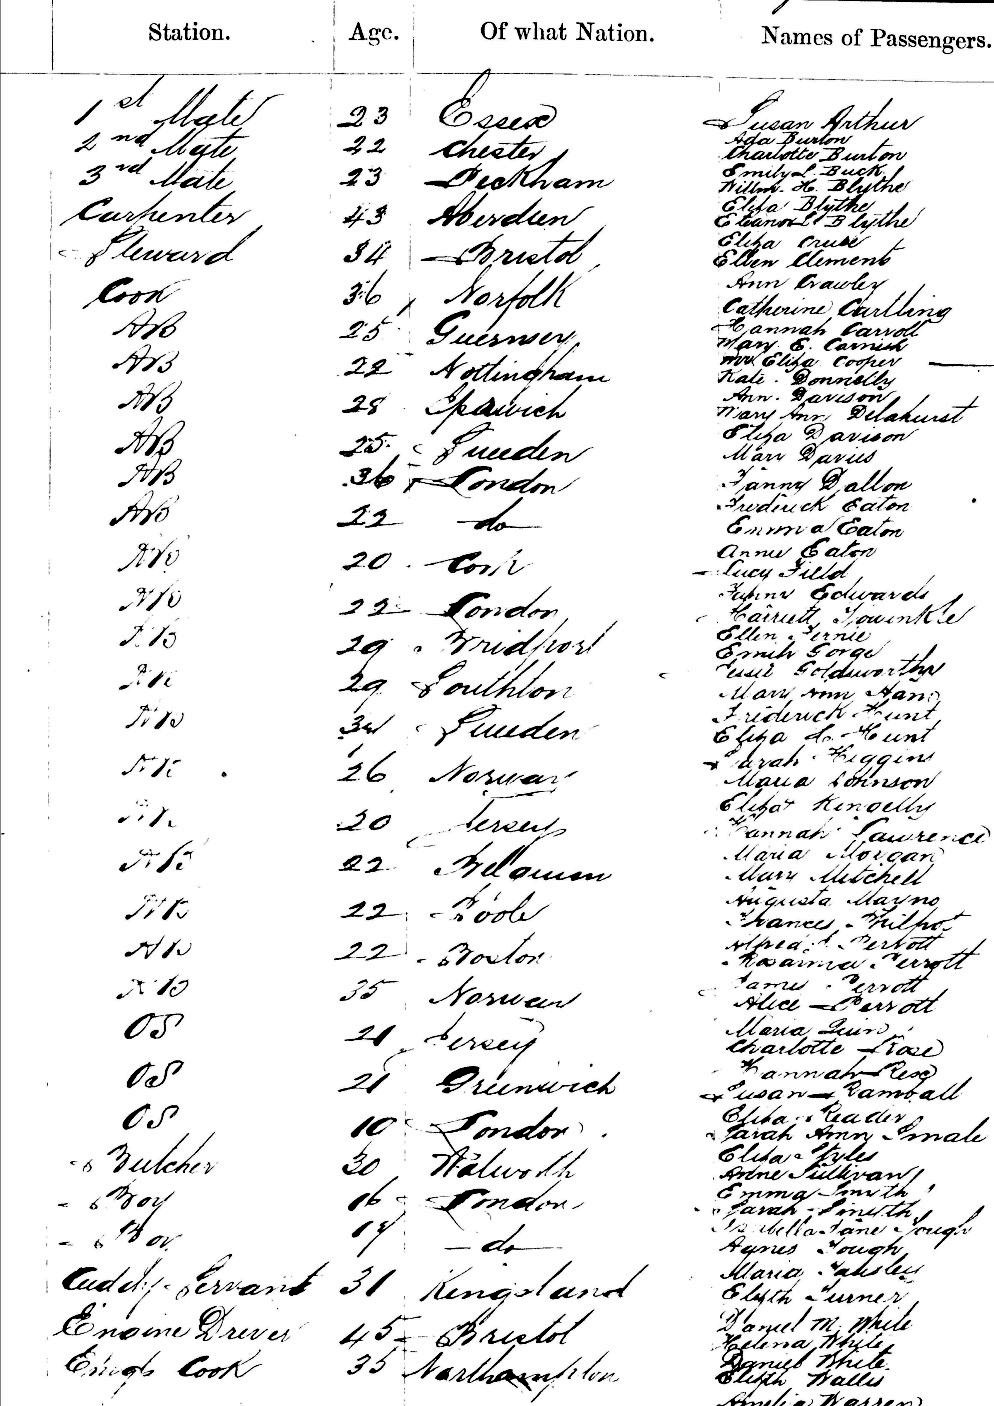 Station. Age. Of what Nation. Names of Passengers.
1st Mate 23 Essex Susan Arthur
Ada Burton
2nd Mate 22 Chester Charlotte Burton
Emily L Buck
3rd Mate 23 Peckham Willm. H. Blythe
Eliza Blythe
Carpenter 43 Aberdeen Eleanor Blythe
Eliza Cruse
Steward 34 Bristol Ellen Clements
Ann Crawley
Cook 36 Norfolk Catherine Carlling
AB 25 Guernsey Hannah Carroll
Mary E. Cornish
Mrs Eliza Cooper
AB 22 Nottingham Kate Donnelly
Ann. Davison
AB 28 Ipswich Mary Ann Delahurst
Eliza Davison
AB 25 Sweden Mary Davies
AB 36 London Fanny Dallon
Frederick Eaton
AB 22 do Emma Eaton
Annie Eaton
AB 20 Cork Lucy Field
Edwards
AB 22 London Harriett
Ellen
AB 29 Bridport Emily Gorge
Jessie Goldsworthy
AB 29 Southton Mary Ann
Frederick Hunt
AB 34 Sweden Eliza Hunt
Sarah Higgins
AB 26 Norway Maria Johnson
Eliza
AB 20 Jersey Hannah Lawrence
Maria Morgan
AB 22 Belgium Mary Mitchell
Augusta Mayno
AB 22 Poole Frances Philpot
Alfred Perrott
AB 22 Boston Rosanna Perrott
James Perrott
AB 35 Norway Alice Perrott
OS 21 Jersey Maria Quin
Charlotte Rose
Hannah Rese
OS 21 Greenwich Susan Ramball
Eliza Reader
OS 10 London Sarah Ann Smale
Eliza Styles
Butcher 30 Walworth Anne Sullivan
Emma Smyth
Boy 16 London Sarah Smyth
Isabella Jane Tough
Boy 17 do Agnes Tough
Maria Tansley
Cuddy Servant 31 Kingsland Elizth Turner
Engine Driver 45 Bristol Daniel M. White
Helena White
Engs Cook 35 Northampton Daniel White
Elizth Wallis
Amelia Warren